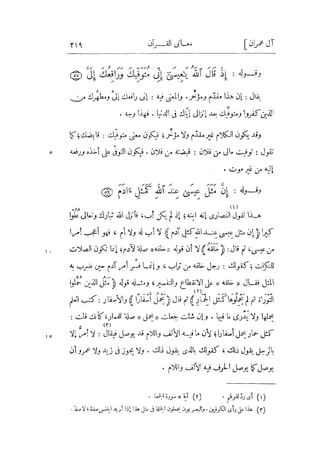 آل عمران ] معانى القرآن ٢١٩
وقوله : إِذْ قَالَ ٱللَّهُ يَٰعِيسَىٰٓ إِنِّى مُتَوَفِّيكَ وَرَافِعُكَ إِلَىَّ ٥٥
يقال : إن هذا مقدّم ومؤخّر . والمعنى فيه : إنى رافعك إلىّ ومطهّرك من
الذين كفروا ومتوفِّيك بعد إنزالى إيّاك فى الدنيا . فهذا وجه .
وقد يكون الكلام غير مقدّم ولا مؤخّر ؛ فيكون معنى متوفيك : قابضك ؛ كما
تقول : توفيت مالى من فلان : قبضته من فلان . فيكون التوفى على أخذه ورفعه ٥
إليه من غير موت .
وقوله : إِنَّ مَثَلَ عِيسَىٰ عِندَ ٱللَّهِ كَمَثَلِ ءَادَمَ ٥٩
هذا لقول النصارى إنه ابنه ؛ إذ لم يكن أب ، فأنزل الله تبارك وتعالى علوّا (١)
كبيرا ﴿ إن مثل عيسى عند الله كمثل آدم ﴾ لا أب له ولا أم ، فهو أعجب أمرا
من عيسى ، ثم قال : ﴿ خَلَقَهُ ﴾ لا أن قوله « خلقه » صلة لآدم ؛ إنما تكون الصلات ١٠
للنكرات ؛ كقولك : رجل خلقه من تراب ، وإنما فسَّر أمر آدم حين ضرب به
المثل فقال « خلقه » على الانقطاع والتفسير ، ومثله قوله ﴿ مَثَلُ الذين حُمِّلوا
التَّوْرَاةَ ثم لَمْ يَحْمِلُوهَا كَمَثَلِ الحِمَارِ ﴾ (٢) ثم قال ﴿ يَحْمِلُ أَسْفَارًا ﴾ والأسفار : كتب العلم
يحملها ولا يَدْرِى ما فيها . وإن شئت جعلت « يحمل » صلة للحمار ، كأنك قلت :
كمثل حمار يحمل أسفارا ؛ لأن ما فيه الألف واللام قد يوصل فيقال : لا أَمُرّ إلا (٣) ١٥
بالرجل يقول ذلك ، كقولك بالذى يقول ذلك . ولا يجوز فى زيد ولا عمرو أن
يوصل كما يوصل الحرف فيه الألف واللام .
(١) أى ردّ لقولهم . (٢) آية ٥ سورة الجمعة .
(٣) هذا على رأى الكوفيين . والبصريون يجعلون الجملة فى مثل هذا إذا أريد الجنس صفة ؛ لا صلة .